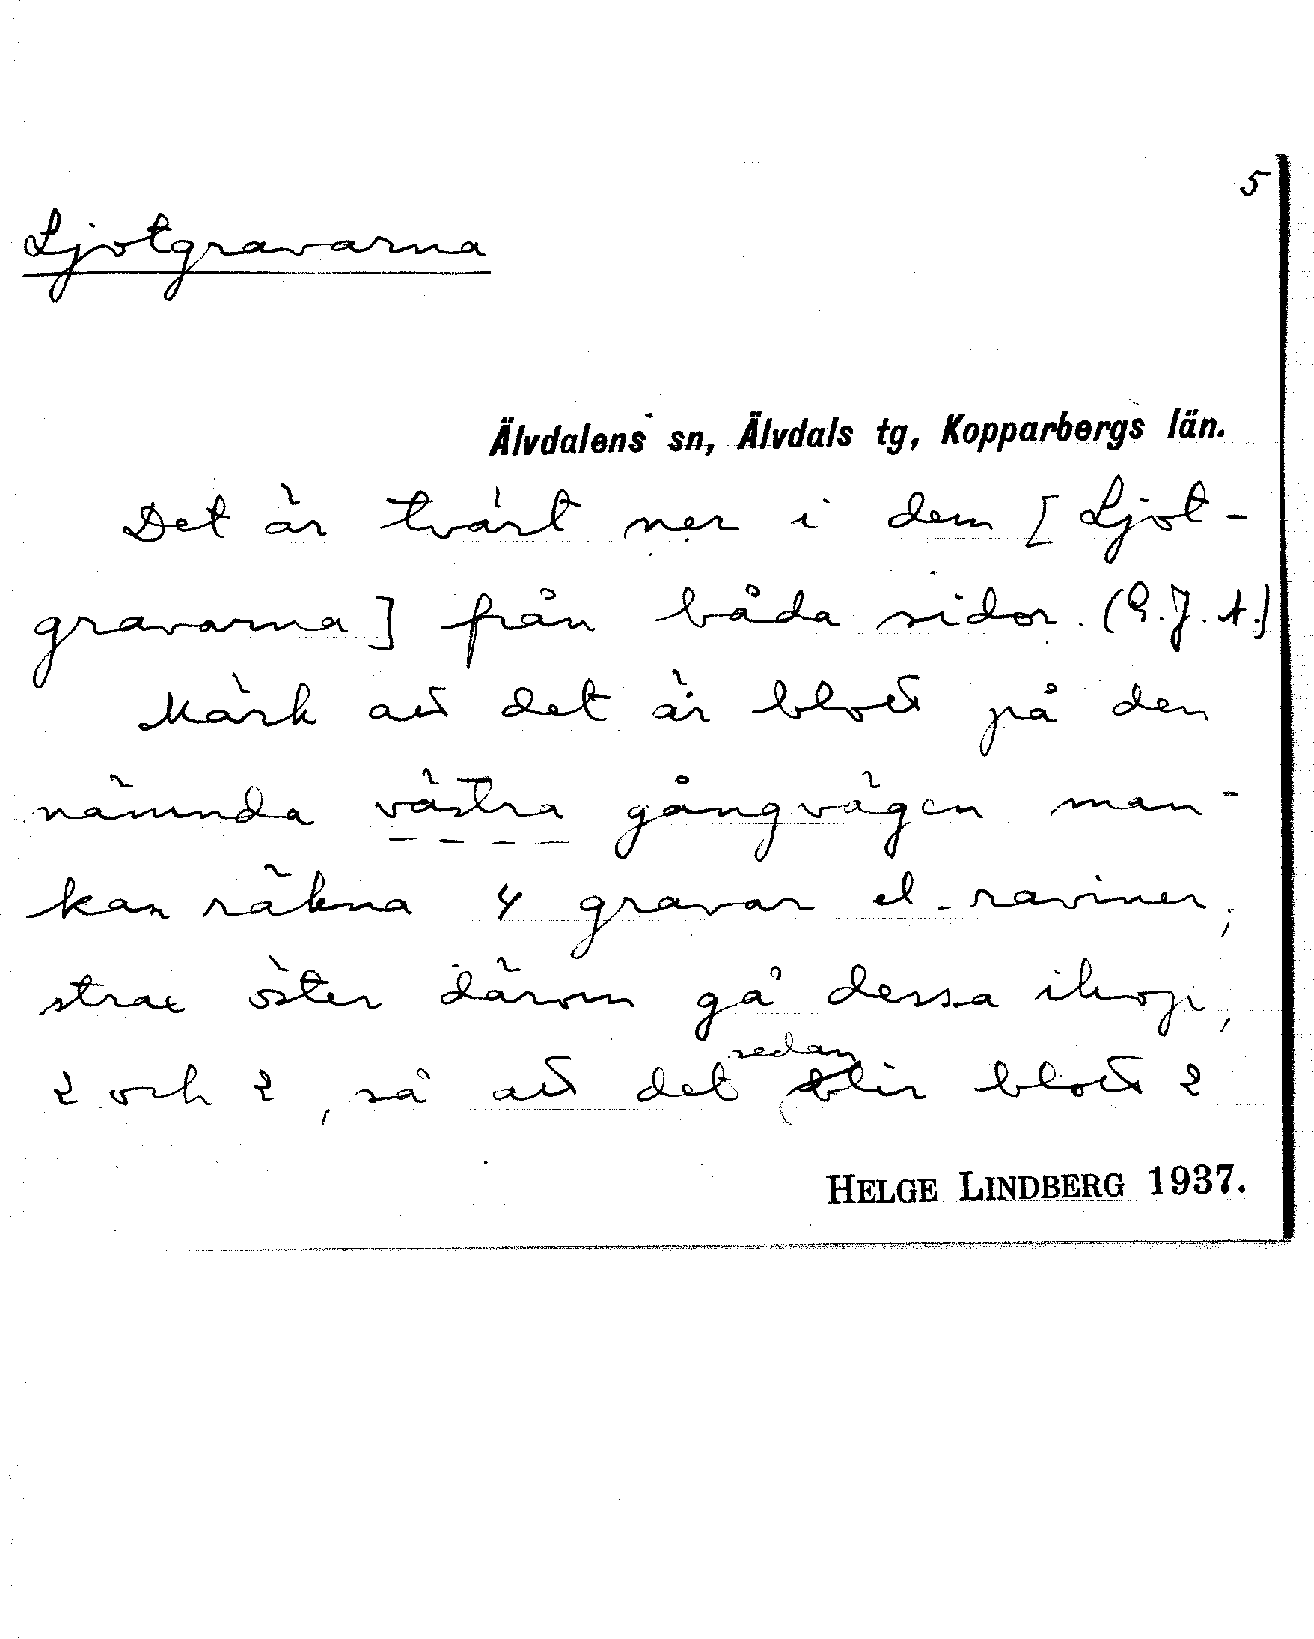 5
Ljotgravarna
Älvdalens sn, Älvdals tg, Kopparbergs län.
Det är tvärt ner i dem [Ljot-
gravarna] från båda sidor. (G.J.A.)
Märk att det är blott på den
nämnda västra gångvägen man
kan räkna 4 gravar el. raviner,
strax öster därom gå dessa ihop,
2 och 2, så att det sedan blir blott 2
HELGE LINDBERG 1937.